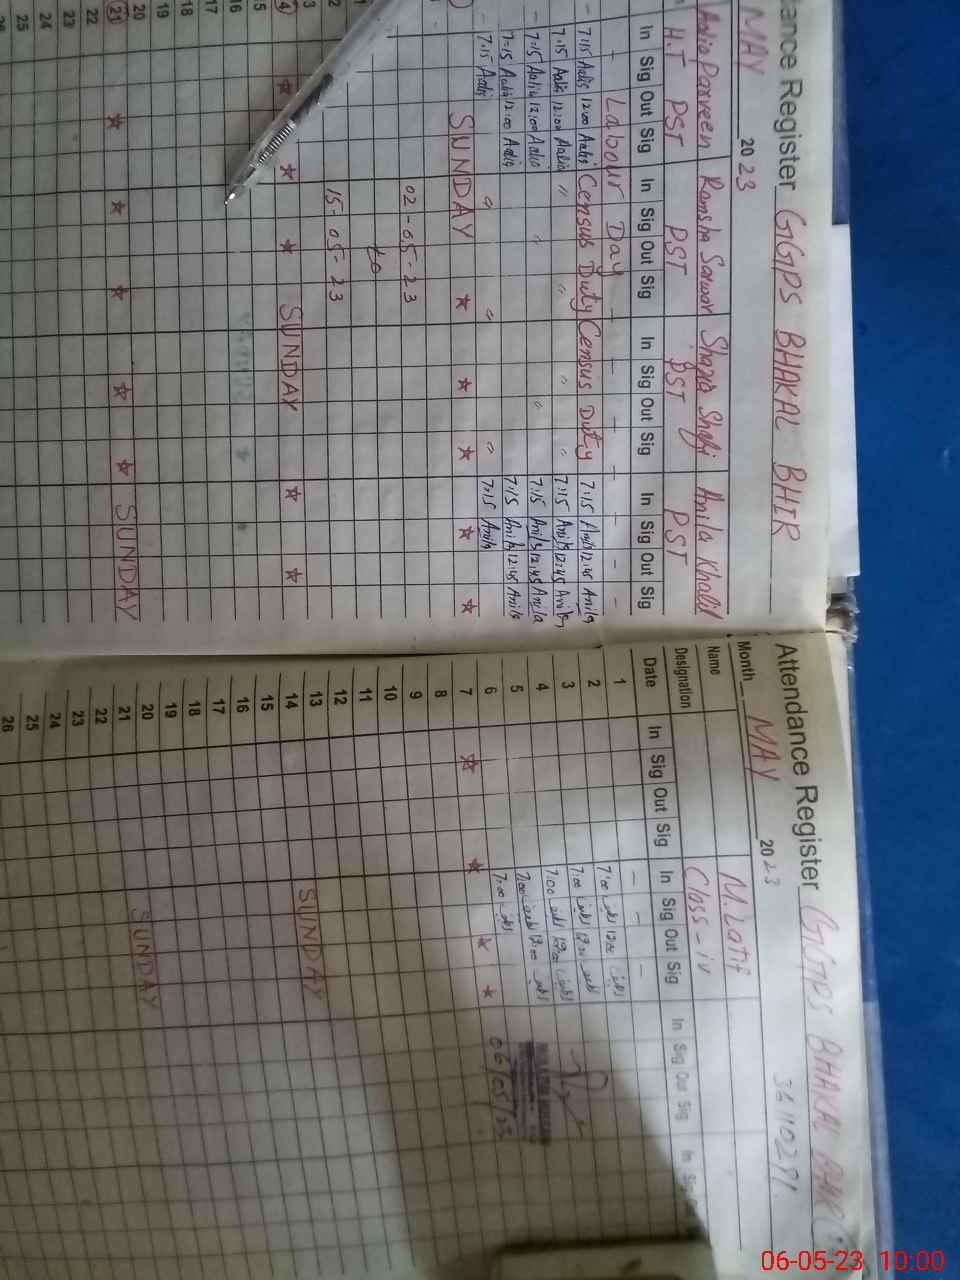 Attendance Register GGPS BHAKAL BHIR
MAY 2023
Aalia Parveen Ramsha Sarwar Shazia Shafi Anila Khalil
H.T PST PST PST PST
In Sig Out Sig In Sig Out Sig In Sig Out Sig In Sig Out Sig
- Labour Day - - - - - -
7:15 Aalia 12:00 Aalia Census Duty Census Duty 7:15 Anila 12:45 Anila
7:15 Aalia 12:00 Aalia " " " " 7:15 Anila 12:45 Anila
7:15 Aalia 12:00 Aalia " " 7:15 Anila 12:45 Anila
7:15 Aalia 12:00 Aalia 7:15 Anila 12:45 Anila
7:15 Aalia " " " 7:15 Anila
SUNDAY
02-05-23
to
15-05-23
SUNDAY
15
16
17
18
19
20
21 SUNDAY
22
23
24
25
Attendance Register GGPS BHAKAL BHIR
36110291
Month MAY 2023
Name M. Latif
Designation Class-iv
Date In Sig Out Sig In Sig Out Sig In Sig Out Sig In Sig
1 - - - -
2 7:00 12:00
3 7:00 12:00
4 7:00 12:00
5 7:00 12:00
6 7:00 06/05/23
7
8
9
10
11
12
13
14 SUNDAY
15
16
17
18
19
20
21 SUNDAY
22
23
24
25
26
06-05-23 10:00